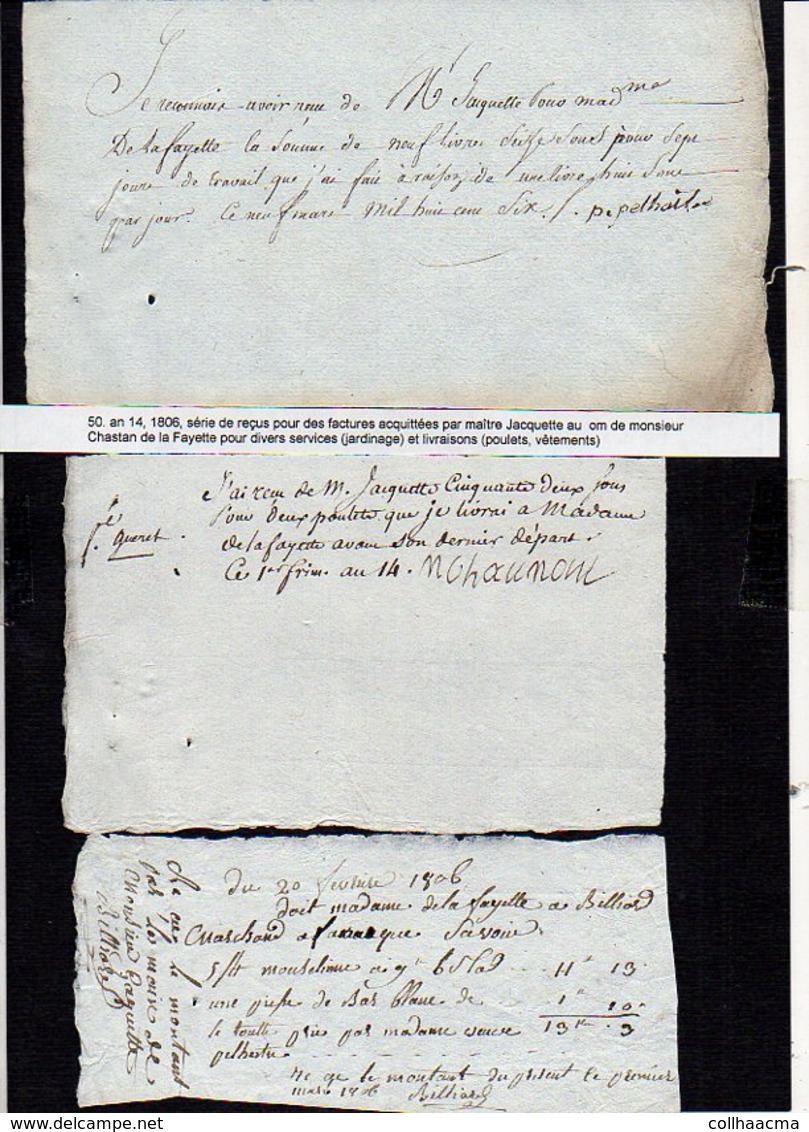 Je reconnois avoir recu de Mr Jacquette pour mad.me
De la fayette la somme de neuf livres seisse sous pour sept
jours de travail que j'ai fait à raison de une livre huit sous
par jour. Ce neuf mars mil huit cent six.
50. an 14, 1806, série de reçus pour des factures acquittées par maître Jacquette au om de monsieur
Chastan de la Fayette pour divers services (jardinage) et livraisons (poulets, vêtements)
J'ai recu de M. Jacquette Cinquante deux sous
pour deux poulets que je livrai a Madame
de la fayette avant son dernier départ.
Ce 1er frim. an 14.
queret
Du 20 fevrier 1806
Doit madame de la fayette a Billiard
Marchand a Savoir
5/4 mouseline a 11 13
une piesse de Bas Blanc de 1 10
le toutte pris par madame 13 3
Re çu le montant du present le premier
mars 1806 Billiard
Re çu le montant
par les mains de
Monsieur Jaquette
Billiard
collhaacma